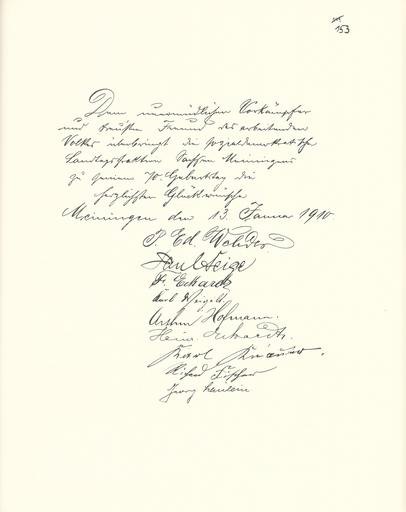 153
Dem unermüdlichen Vorkämpfer
und treusten Freund des arbeitenden
Volkes überbringt die sozialdemokratische
Landtagsfraktion Sachsen Meiningens
zu seinem 70. Geburtstag die
herzlichsten Glückwünsche
Meiningen den 13. Januar 1910
P. Ed. 
Paul Seige
Fr. Eckardt
Karl Weigelt
Arthur Hofmann.
Hein. Eckardt.
Karl Knauer.
Richard Fischer
Georg